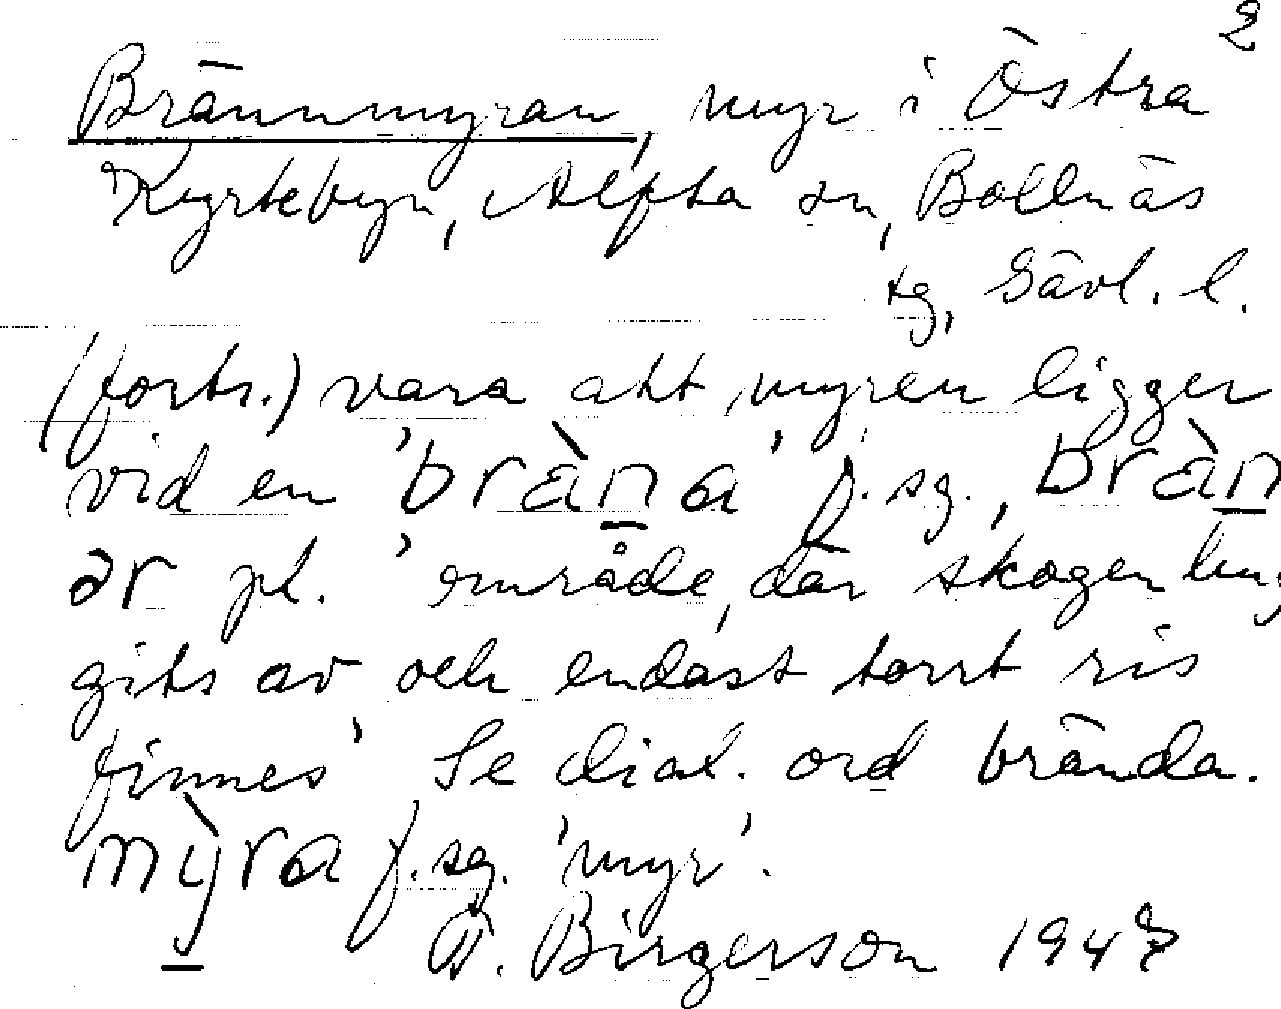 2
Brännmyran, myr i Östra
Kyrkbyn, Alfta sn, Bollnäs
tg, Gävl. l.
(forts.) vara att myren ligger
vid en 'bràna' f. sg., bràn
ər pl. 'område, där skogen hug
gits av och endast torrt ris
finnes' Se dial. ord brända.
mỳra f. sg. 'myr'.
Birgerson 194